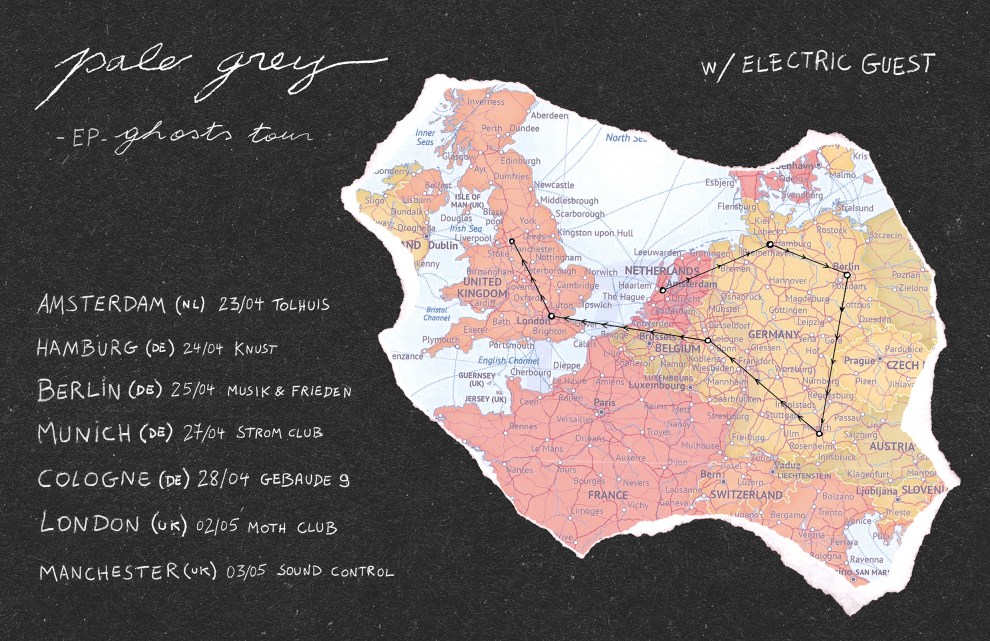 pale grey
w/ ELECTRIC GUEST
-EP- ghosts tour
AMSTERDAM (NL) 23/04 TOLHUIS
HAMBURG (DE) 24/04 KNUST
BERLIN (DE) 25/04 MUSIK & FRIEDEN
MUNICH (DE) 27/04 STROM CLUB
COLOGNE (DE) 28/04 GEBAUDE 9
LONDON (UK) 02/05 MOTH CLUB
MANCHESTER (UK) 03/05 SOUND CONTROL
Inverness
Aberdeen
Perth Dundee
Inner
Seas
North Se
Glasgow
Edinburgh
Ayr
Dumfries
Newcastle
Middlesbrough
Scarborough
Belfast
Sligo
Lisburn
Dundalk
ISLE OF
MAN (UK)
Douglas
Irish Sea
Black
pool
York
Leeds
Kingston upon Hull
Drogheda
Dublin
Liverpool
Stoke
Nottingham
Birmingham
Norwich
UNITED
KINGDOM
Coventry
Cambridge
Oxford
Ipswich
Bristol
Channel
Bath
London
Exeter
Brighton
Plymouth
Portsmouth
Calais
English Channel
Dieppe
Cherbourg
GUERNSEY
(UK)
JERSEY (UK)
Caen
Le Havre
Amiens
Rennes
Versailles
Paris
Reims
Metz
Le Mans
Orleans
Troyes
Nancy
Nantes
Tours
Auxerre
Dijon
Mulhouse
Bourges
Nevers
FRANCE
Vichy
Geneva
Limoges
Lausanne
Bern
SWITZERLAND
Basel
Zürich
Vaduz
LIECHTENSTEIN
Esbjerg
Odense
Svendborg
Malmo
Kris
Flensburg
Kiel
Stralsund
Rostock
Lübeck
Hamburg
Szczecin
Bremerhaven
Bremen
Leeuwarden
Groningen
NETHERLANDS
Haarlem
Amsterdam
The Hague
Utrecht
Berlin
Potsdam
Poznań
Zielona
Hannover
Magdeburg
Osnabrück
Münster
Göttingen
Leipzig
Dresden
Antwerpen
Brussels
BELGIUM
Düsseldorf
Cologne
GERMANY
Jena
Koblenz
Frankfurt
Wiesbaden
LUXEMBOURG
Luxembourg
Mannheim
Würzburg
Nürnberg
Saarbrücken
Prague
Pardubice
CZECH
Plzen
Jihlava
Stuttgart
Regensburg
Strasbourg
Ulm
Passau
Freiburg
Rosenheim
Salzburg
Innsbruck
AUSTRIA
Klagenfurt
Ljubljana
SLOVENI
Bolzano
Trieste
Lugano
Bergamo
Trento
Venice
Verona
Ferrara
Bologna
Ravenna
SAN MAR